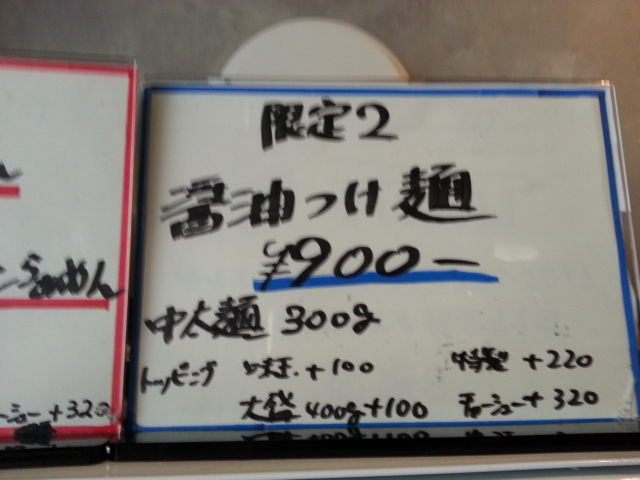 限定2
醤油つけ麺
¥900-
中太麺 300g
トッピング 味玉.+100 特製 +220
大盛400g+100 チャーシュー+ 320
ーシュー+320